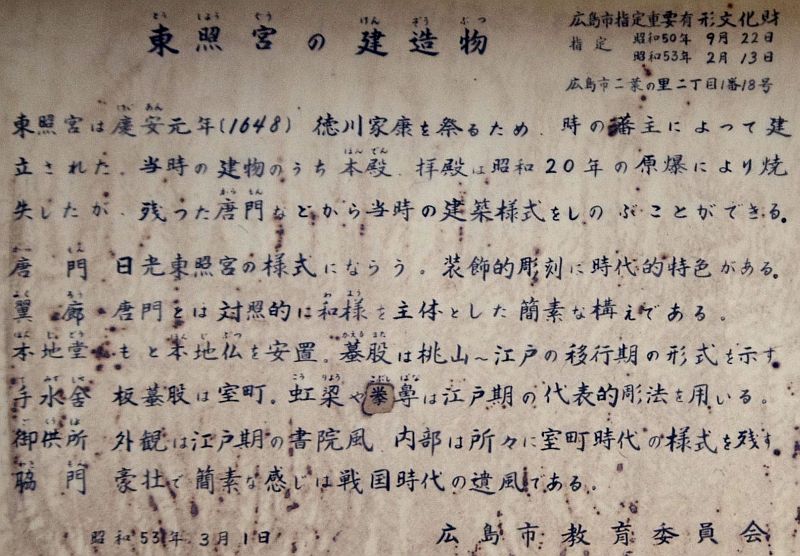 東照宮の建造物
広島市指定重要有形文化財
指定 昭和50年 9月 22日
昭和53年 2月 13日
広島市二葉の里二丁目1番18号
東照宮は慶安元年(1648) 徳川家康を祭るため、時の藩主によって建
立された。当時の建物のうち本殿、拝殿は昭和20年の原爆により焼
失したが、残った唐門などから当時の建築様式をしのぶことができる。
唐門 日光東照宮の様式にならう。装飾的彫刻に時代的特色がある。
翼廊 唐門とは対照的に和様を主体とした簡素な構えである。
本地堂 もと本地仏を安置。蟇股は桃山~江戸の移行期の形式を示す
手水舎 板蟇股は室町。虹梁や拳鼻は江戸期の代表的彫法を用いる。
御供所 外観は江戸期の書院風、内部は所々に室町時代の様式を残す。
脇門 豪壮で簡素な感じは戦国時代の遺風である。
昭和53年3月1日 広島市教育委員会